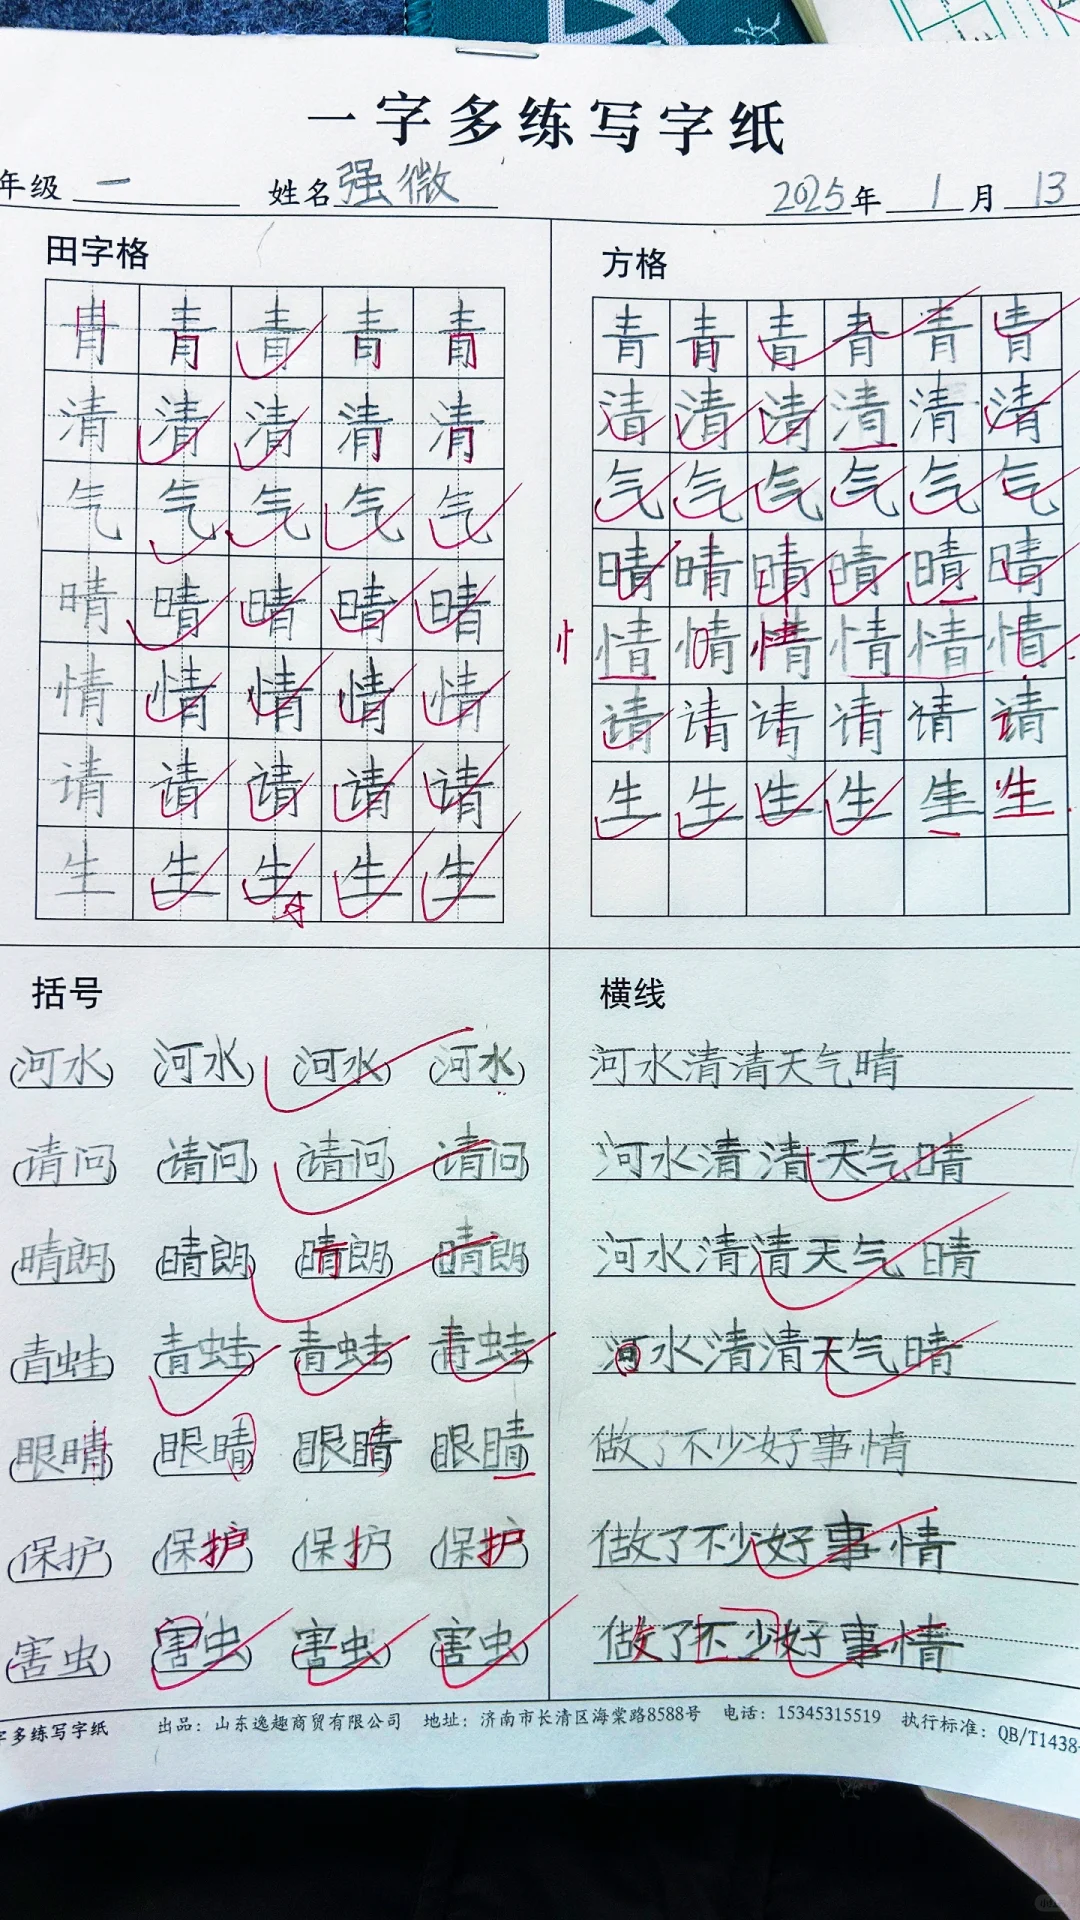 一字多练写字纸
年级 一 姓名 强微 2025年 1月 13
田字格
青 青 青 青 青
清 清 清 清 清
气 气 气 气 气
晴 晴 晴 晴 晴
情 情 情 情 情
请 请 请 请 请
生 生 生 生 生
方格
青 青 青 青 青 青
清 清 清 清 清 清
气 气 气 气 气 气
晴 晴 晴 晴 晴 晴
忄 情 情 情 情 情 情
请 请 请 请 请 请
生 生 生 生 生 生
括号
(河水) (河水) (河水) (河水)
(请问) (请问) (请问) (请问)
(晴朗) (晴朗) (晴朗) (晴朗)
(青蛙) (青蛙) (青蛙) (青蛙)
(眼睛) (眼睛) (眼睛) (眼睛)
(保护) (保护) (保护) (保护)
(害虫) (害虫) (害虫) (害虫)
横线
河水清清天气晴
河水清清天气晴
河水清清天气晴
河水清清天气晴
做了不少好事情
做了不少好事情
做了不少好事情
字多练写字纸 出品：山东逸趣商贸有限公司 地址：济南市长清区海棠路8588号 电话：15345315519 执行标准：QB/T1438-